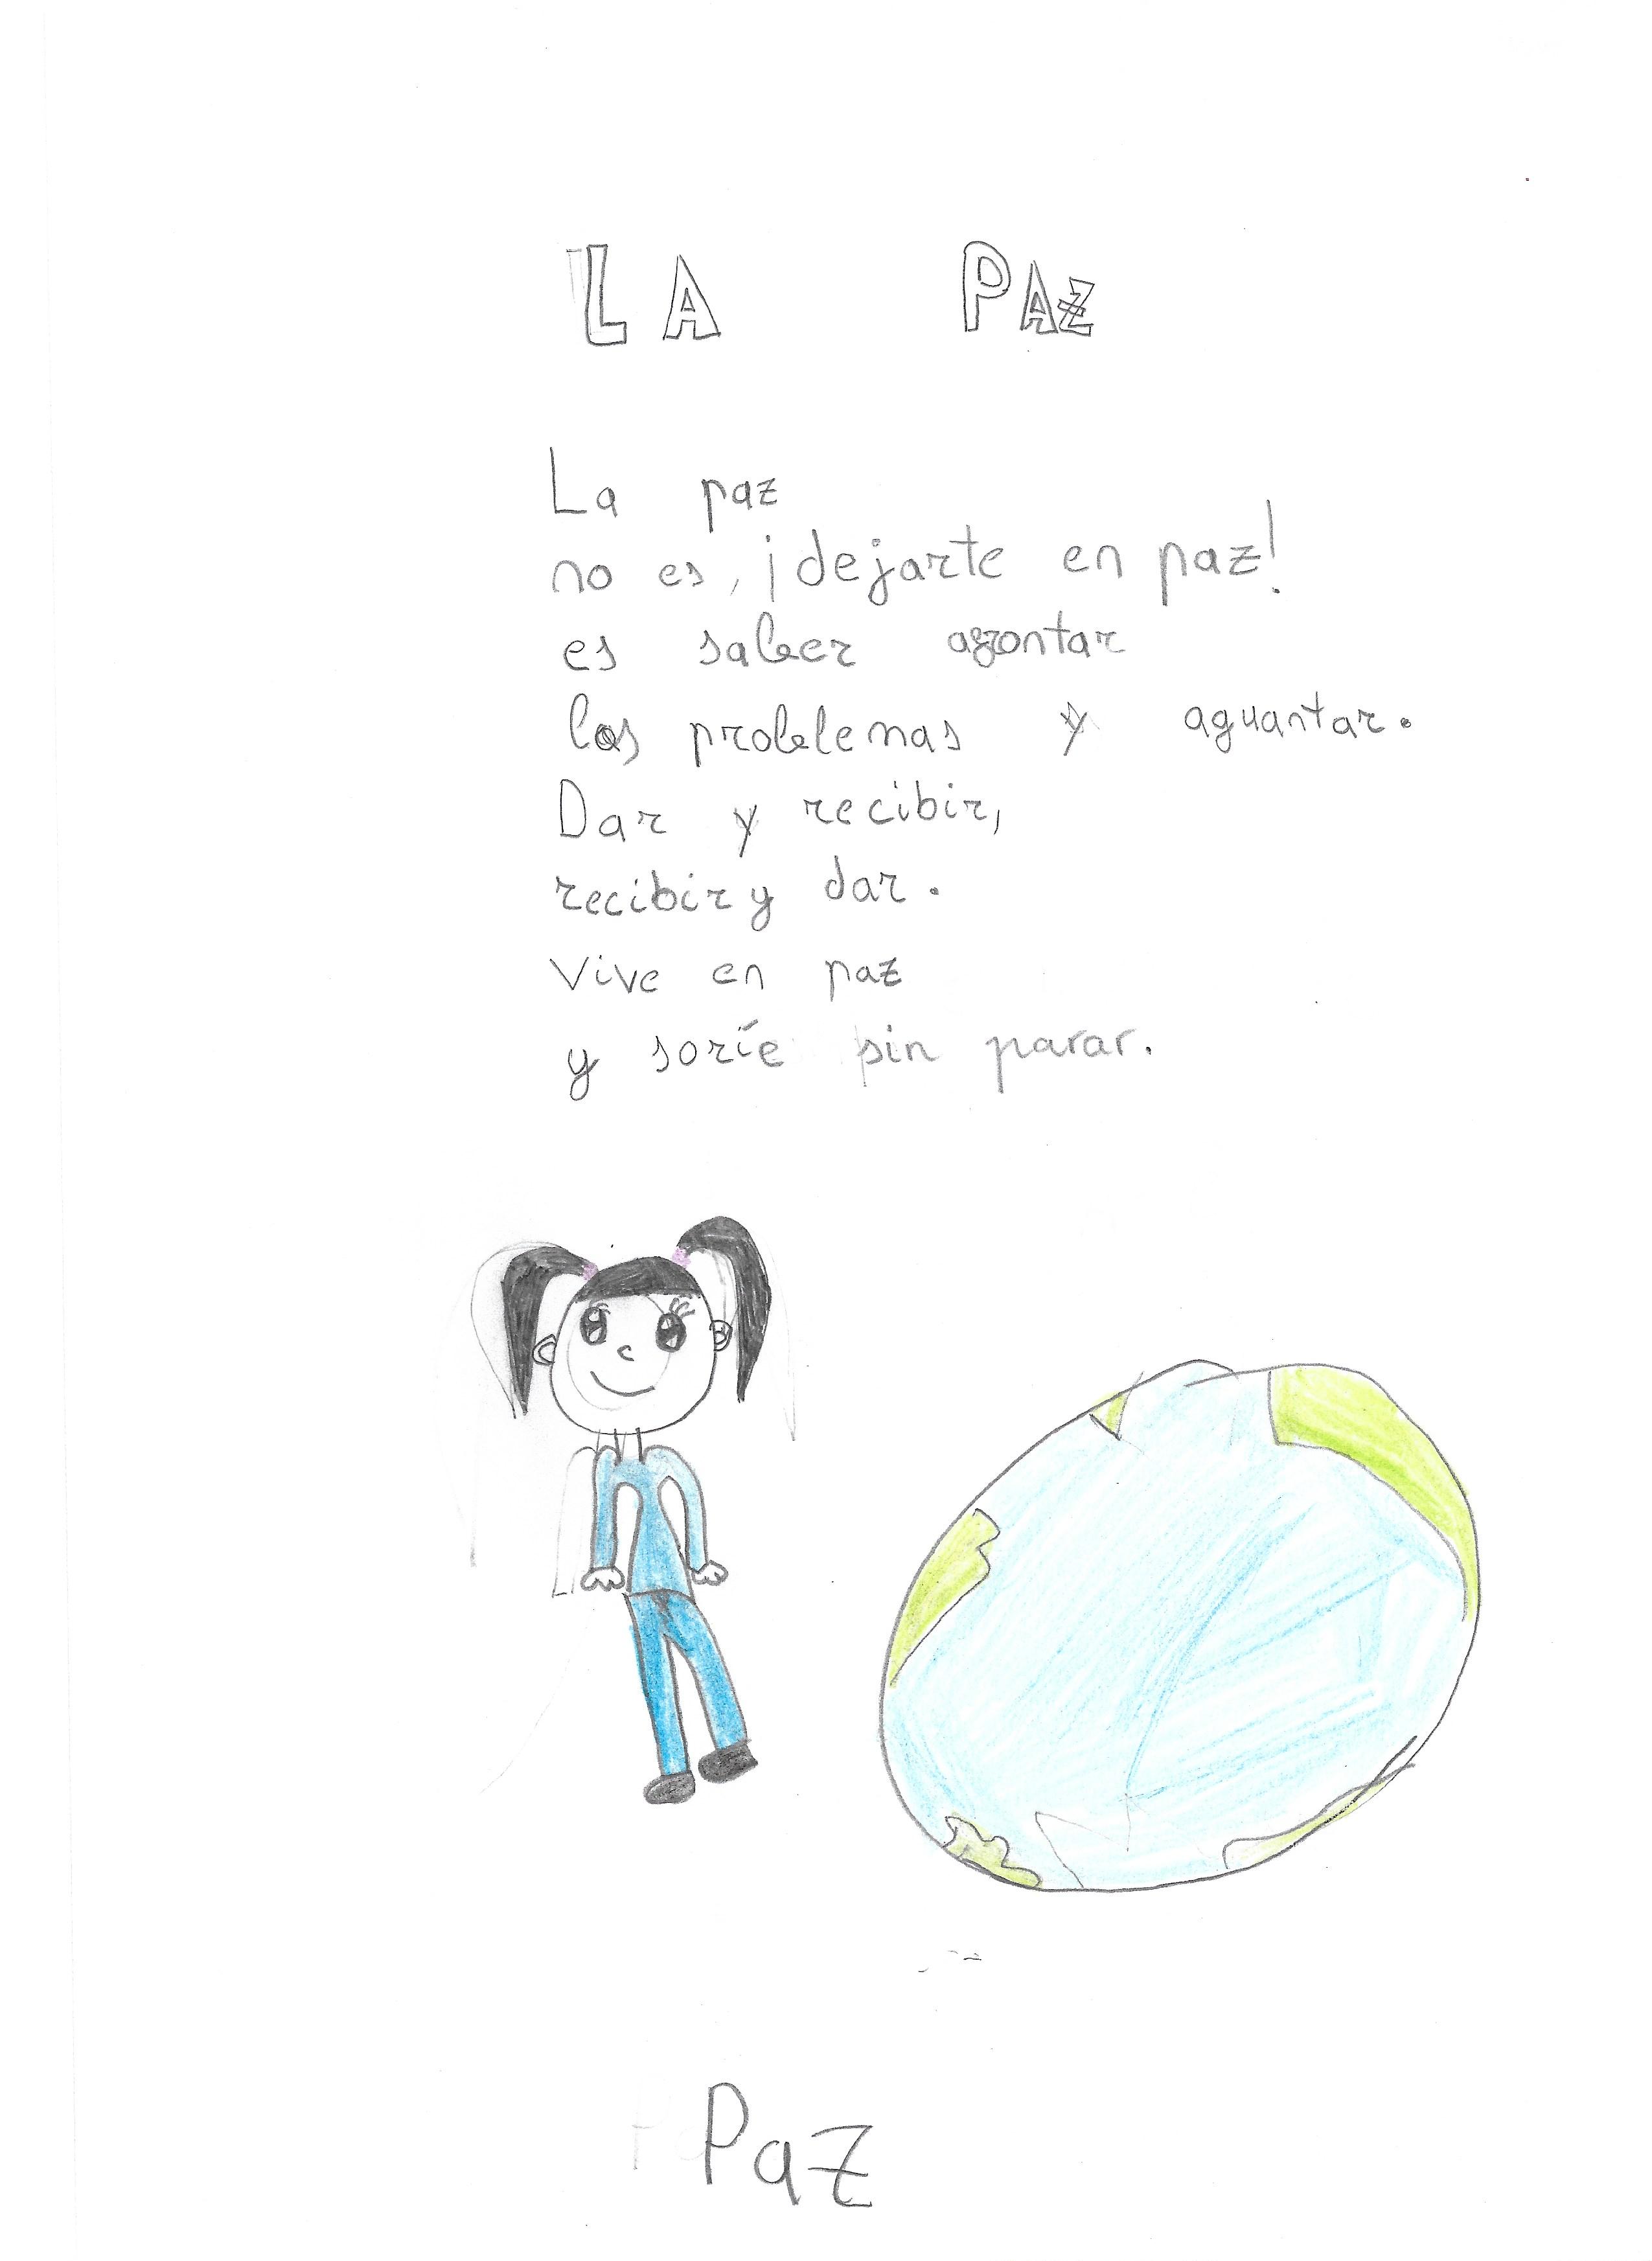 LA PAZ
La paz
no es, ¡dejarte en paz!
es saber agrontar
los problemas y aguantar.
Dar y recibir,
recibir y dar.
Vive en paz
y soríe sin parar.
Paz